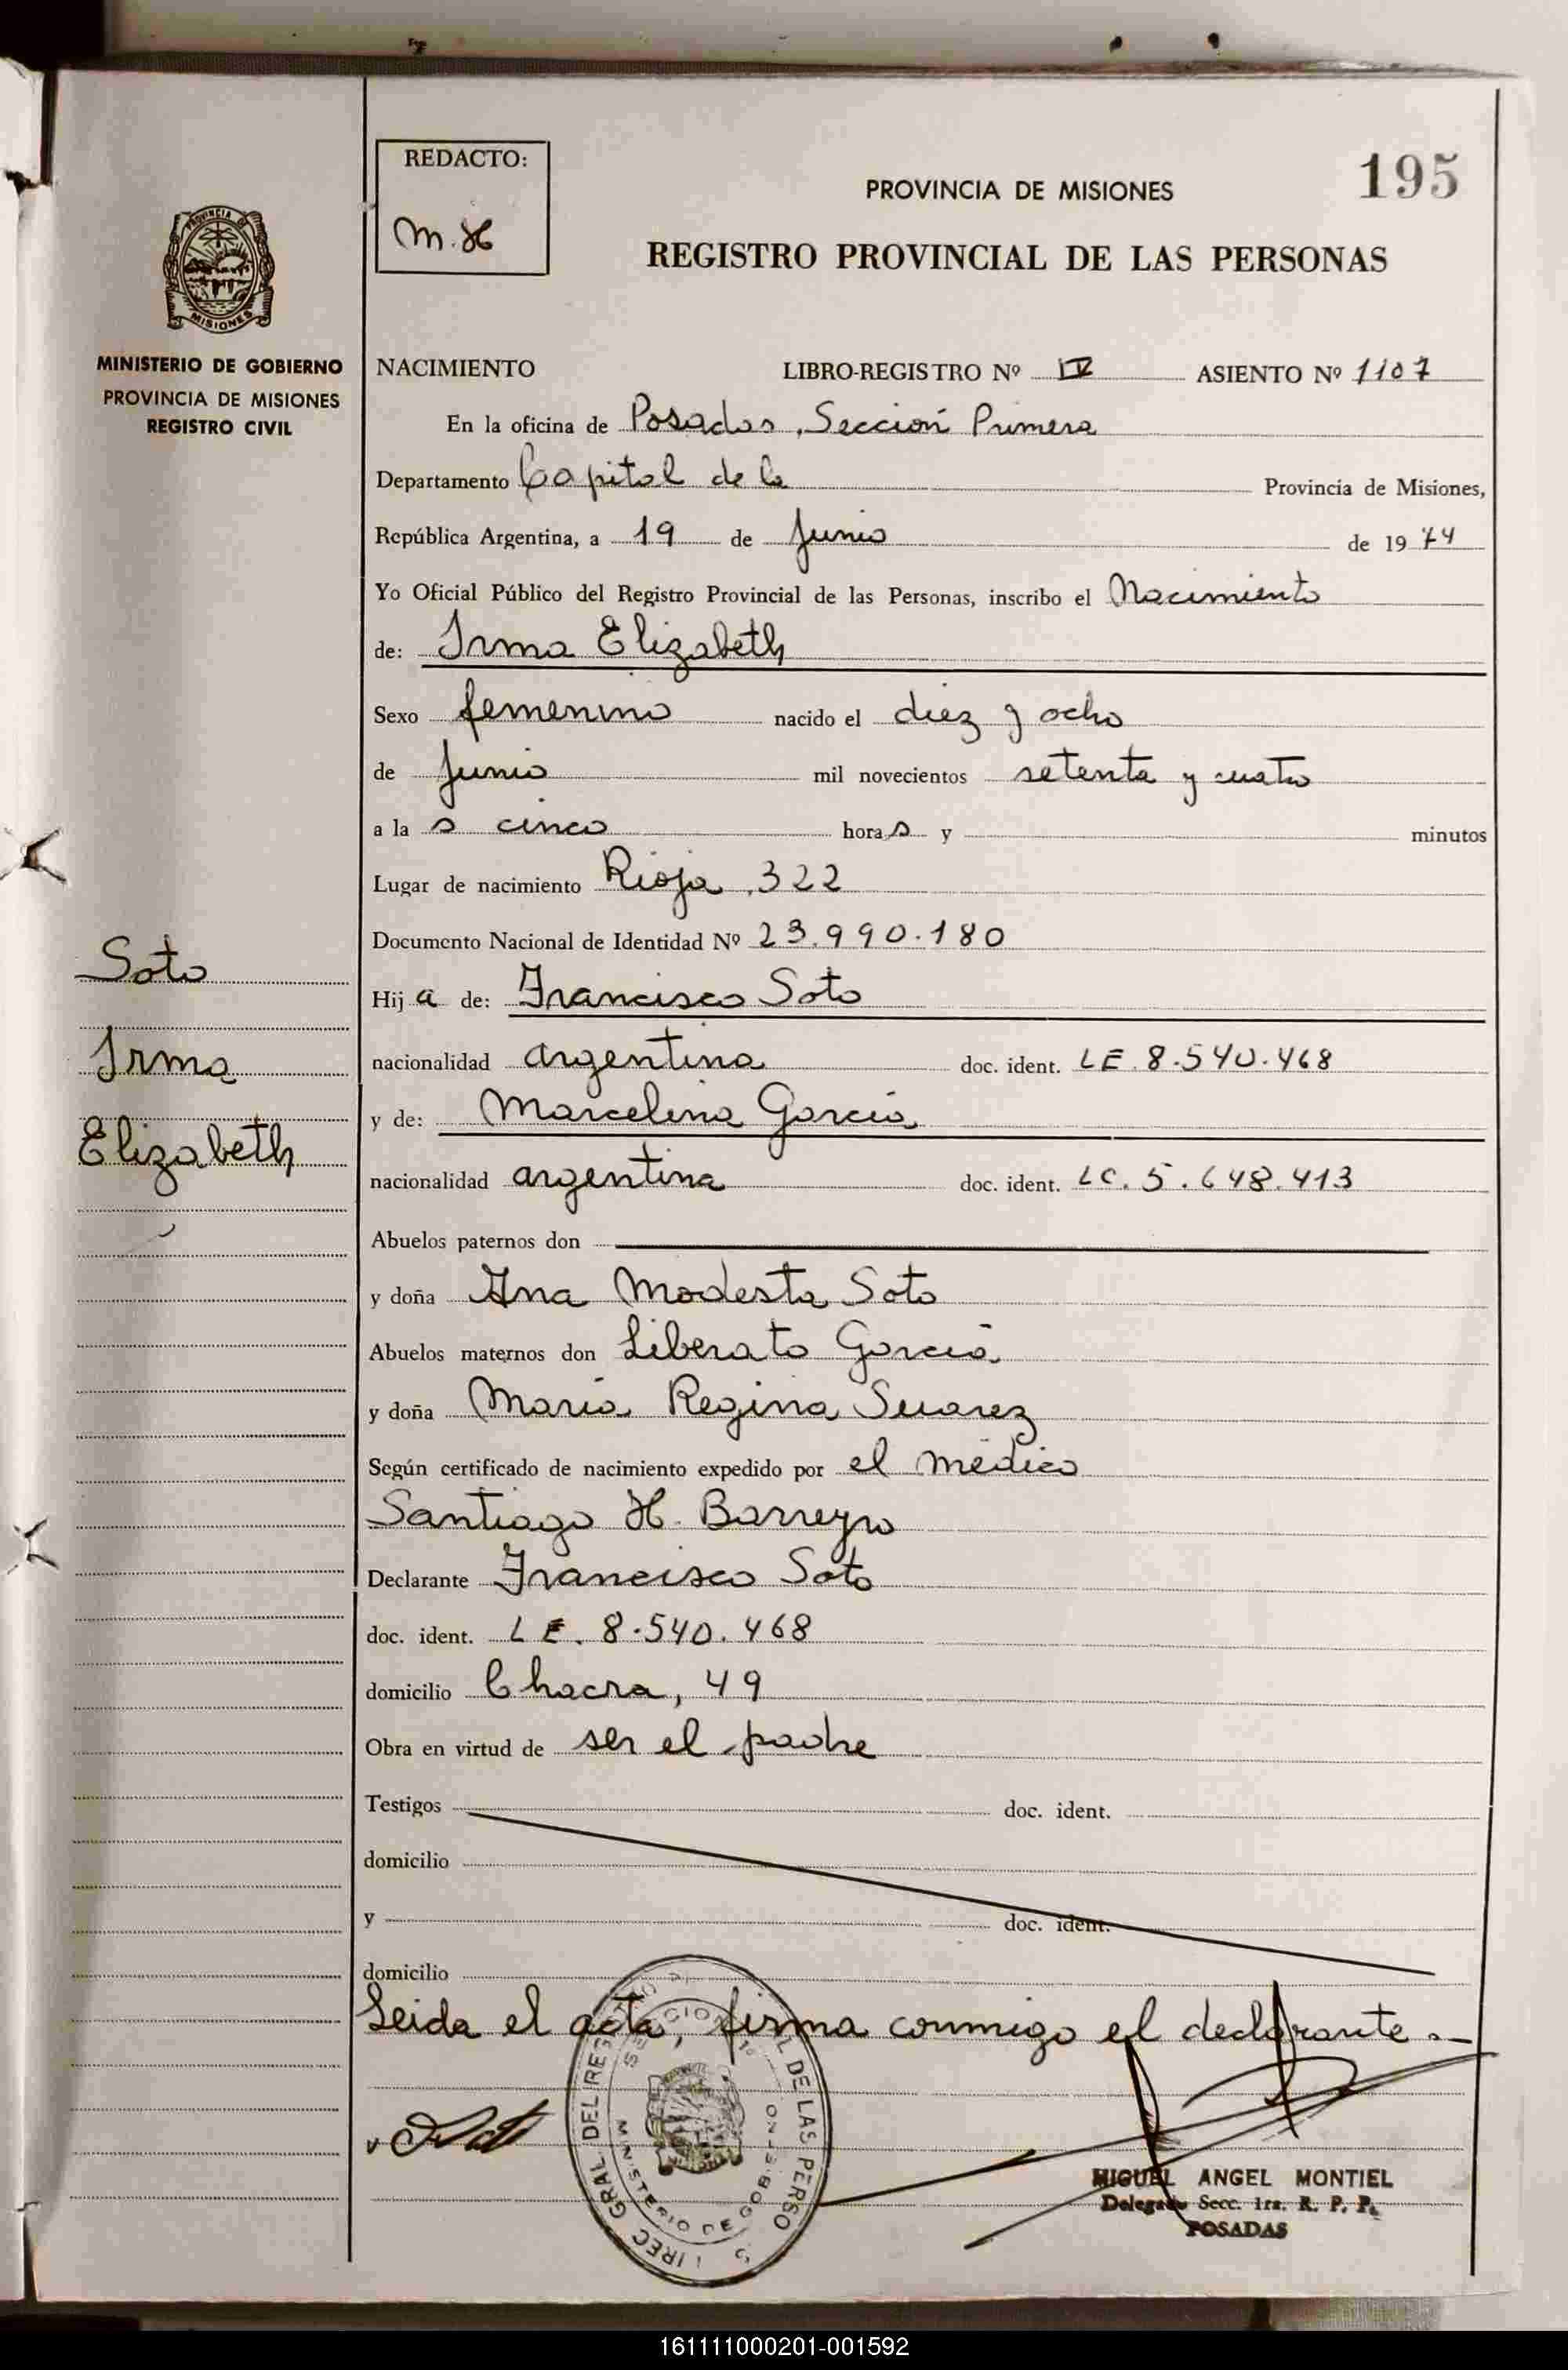 REDACTO:
M.H
PROVINCIA DE MISIONES
195
REGISTRO PROVINCIAL DE LAS PERSONAS
PROVINCIA DE
MISIONES
MINISTERIO DE GOBIERNO
PROVINCIA DE MISIONES
REGISTRO CIVIL
NACIMIENTO LIBRO-REGISTRO Nº IV ASIENTO Nº 1107
En la oficina de Posadas, Sección Primera
Departamento Capital de la Provincia de Misiones,
República Argentina, a 19 de Junio de 1974
Yo Oficial Público del Registro Provincial de las Personas, inscribo el Nacimiento
de: Irma Elizabeth
Sexo femenino nacido el diez y ocho
de Junio mil novecientos setenta y cuatro
a la s cinco hora s y minutos
Lugar de nacimiento Rioja, 322
Documento Nacional de Identidad Nº 23.990.180
Soto
Irma
Elizabeth
Hij a de: Francisco Soto
nacionalidad argentina doc. ident. LE. 8.540.468
y de: Marcelina García
nacionalidad argentina doc. ident. LC. 5.648.413
Abuelos paternos don
y doña Ana Modesta Soto
Abuelos maternos don Liberato García
y doña María Regina Suarez
Según certificado de nacimiento expedido por el médico
Santiago H. Barreyro
Declarante Francisco Soto
doc. ident. LE. 8.540.468
domicilio Chacra, 49
Obra en virtud de ser el padre
Testigos doc. ident.
domicilio
y doc. ident.
domicilio
Leida el acta, firma conmigo el declarante.—
Soto
MINISTERIO DE GOBIERNO
MIGUEL ANGEL MONTIEL
Delegado Secc. 1ra. R. P. P.
POSADAS
161111000201-001592